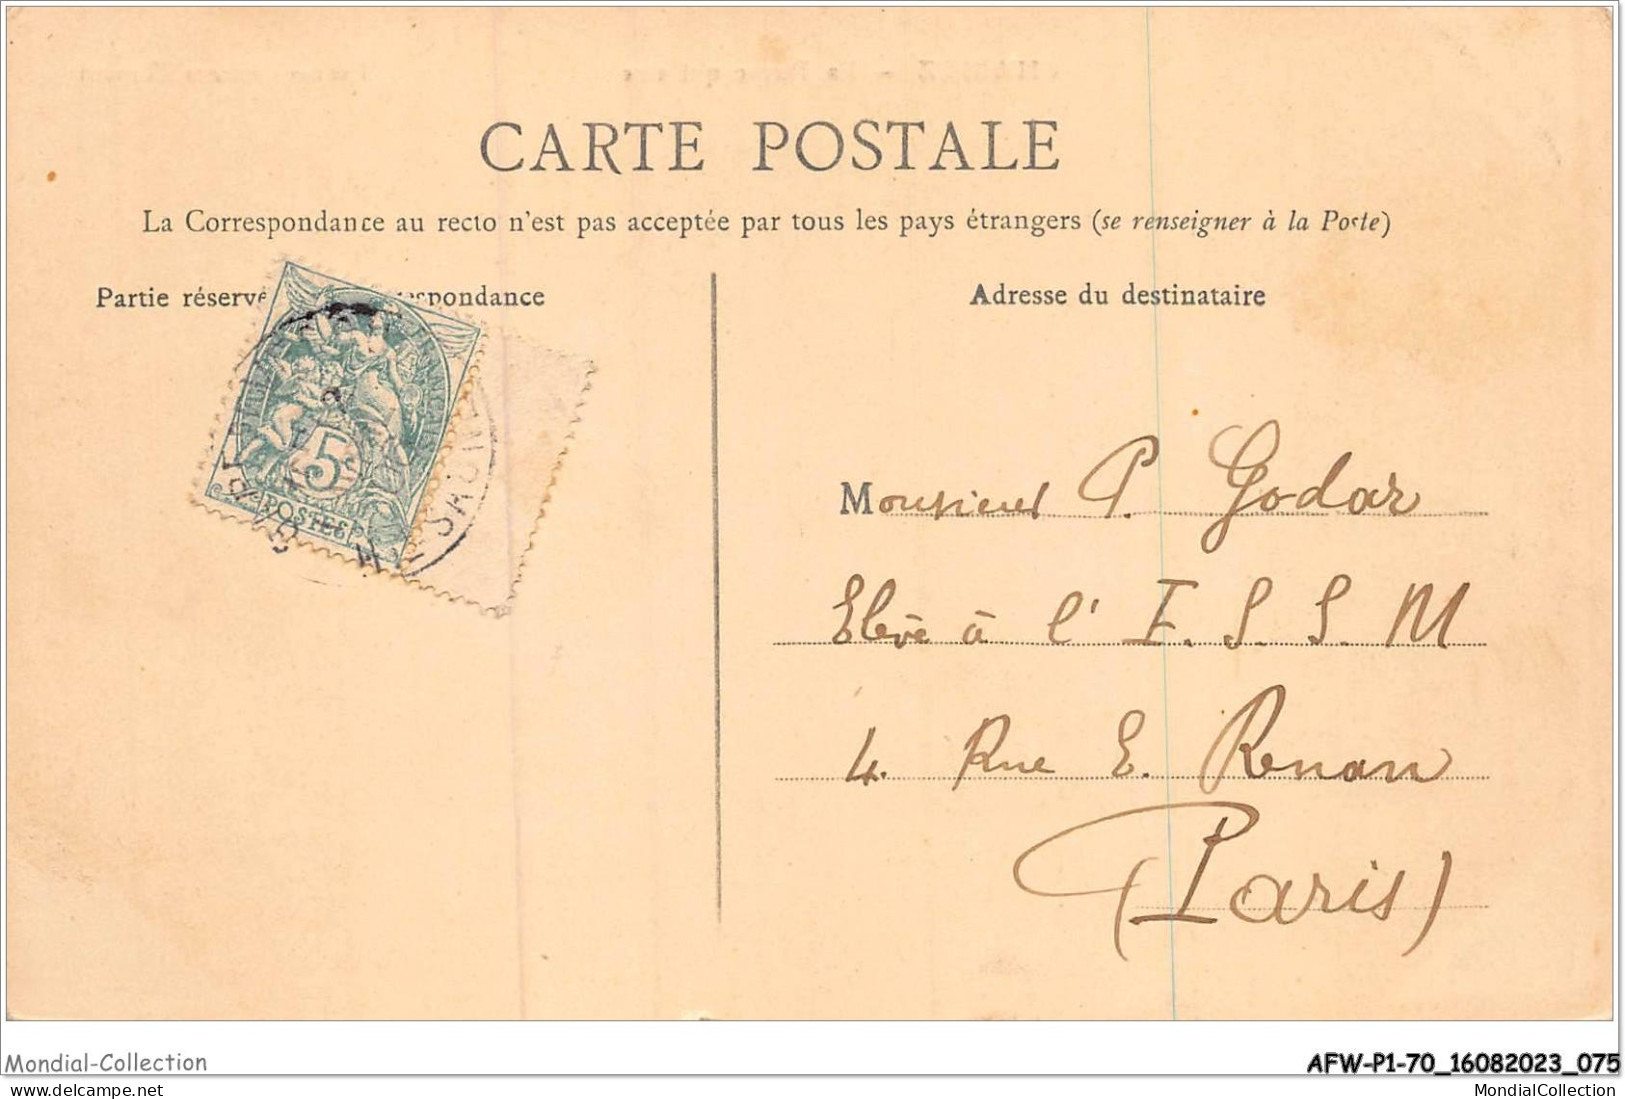 CARTE POSTALE
La Correspondance au recto n'est pas acceptée par tous les pays étrangers (se renseigner à la Poste)
Partie réservé spondance
Adresse du destinataire
5
POSTES
Monsieur P. Godar
Elève à l' I. S. S. M
4. Rue E. Renan
(Paris)
Mondial-Collection
AFW-P1-70_16082023_075
delcampe.net
MondialCollection